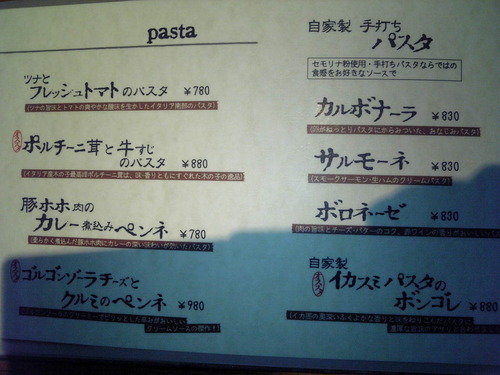 pasta
ツナと
フレッシュトマトのパスタ ￥780
(ツナの旨味とトマトの爽やかな酸味を生かしたイタリア南部のパスタ)
ポルチーニ茸と牛すじ
のパスタ ￥880
(イタリア産木の子最高峰ポルチーニ茸は、味・香りともにすぐれた木の子の逸品)
豚ホホ肉の
カレー煮込みペンネ ￥780
(柔らかく煮込んだ豚ホホ肉にカレーの深い味わいが効いたパスタ)
ゴルゴンゾーラチーズと
クルミのペンネ ￥980
クリームソースの傑作!)
自家製 手打ち
パスタ
セモリナ粉使用・手打ちパスタならではの
食感をお好きなソースで
カルボナーラ ￥830
(卵がねっとりパスタにからみついた、おなじみパスタ)
サルモーネ ￥830
(スモークサーモン・生ハムのクリームパスタ)
ボロネーゼ ￥830
(肉の旨味とチーズ・バターのコク、赤ワインの香りがおいしい
自家製
イカスミパスタの
ボンゴレ ￥880